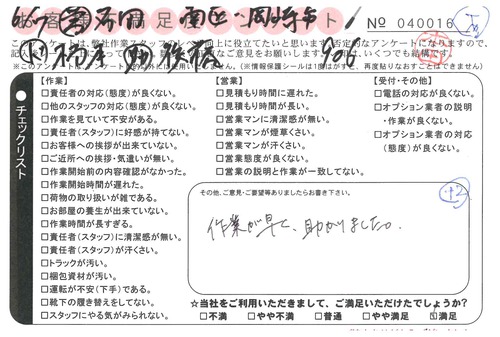 No 040016
このアンケートは、弊社作業スタッフの
役立てたいと思います。否定的なアンケートになりますので、
お客様には
ご意見をお願いします。
いくつでも結構です。
(※情報保護シールは1度はがすと、再度貼りなおすことはできません)
チェックリスト
【作業】
□責任者の対応(態度)が良くない。
□他のスタッフの対応(態度)が良くない。
□作業を見ていて不安がある。
□責任者(スタッフ)に好感が持てない。
□お客様への挨拶が出来ていない。
□ご近所への挨拶・気遣いが無い。
□作業開始前の内容確認がなかった。
□作業開始時間が遅れた。
□荷物の取り扱いが雑である。
□お部屋の養生が出来ていない。
□作業時間が長すぎる。
□責任者(スタッフ)に清潔感が無い。
□責任者(スタッフ)が汗くさい。
□トラックが汚い。
□梱包資材が汚い。
□運転が不安(下手)である。
□靴下の履き替えをしてない。
□スタッフにやる気がみられない。
【営業】
□見積もり時間に遅れた。
□見積もり時間が長い。
□営業マンに清潔感が無い。
□営業マンが煙草くさい。
□営業マンが汗くさい。
□営業態度が良くない。
□営業の説明と作業が一致してない。
【受付・その他】
□電話の対応が良くない。
□オプション業者の説明
・作業が良くない。
□オプション業者の対応
(態度)が良くない。
その他、ご意見・ご要望等ありましたらお書き下さい。
+2
作業が早く、助かりました。
☆当社をご利用いただきまして、ご満足いただけたでしょうか?
□不満 □やや不満 □普通 □やや満足 ☑満足